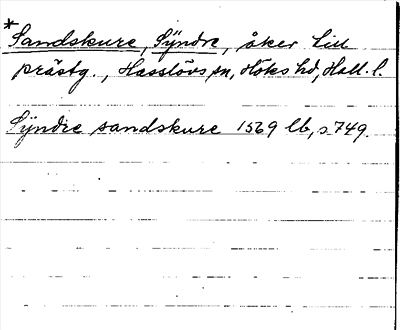 * Sandskure, Syndre, åker till
prästg., Hasslövs sn, Höks hd, Hall. l.
Syndre sandskure 1569 lb, s 749.